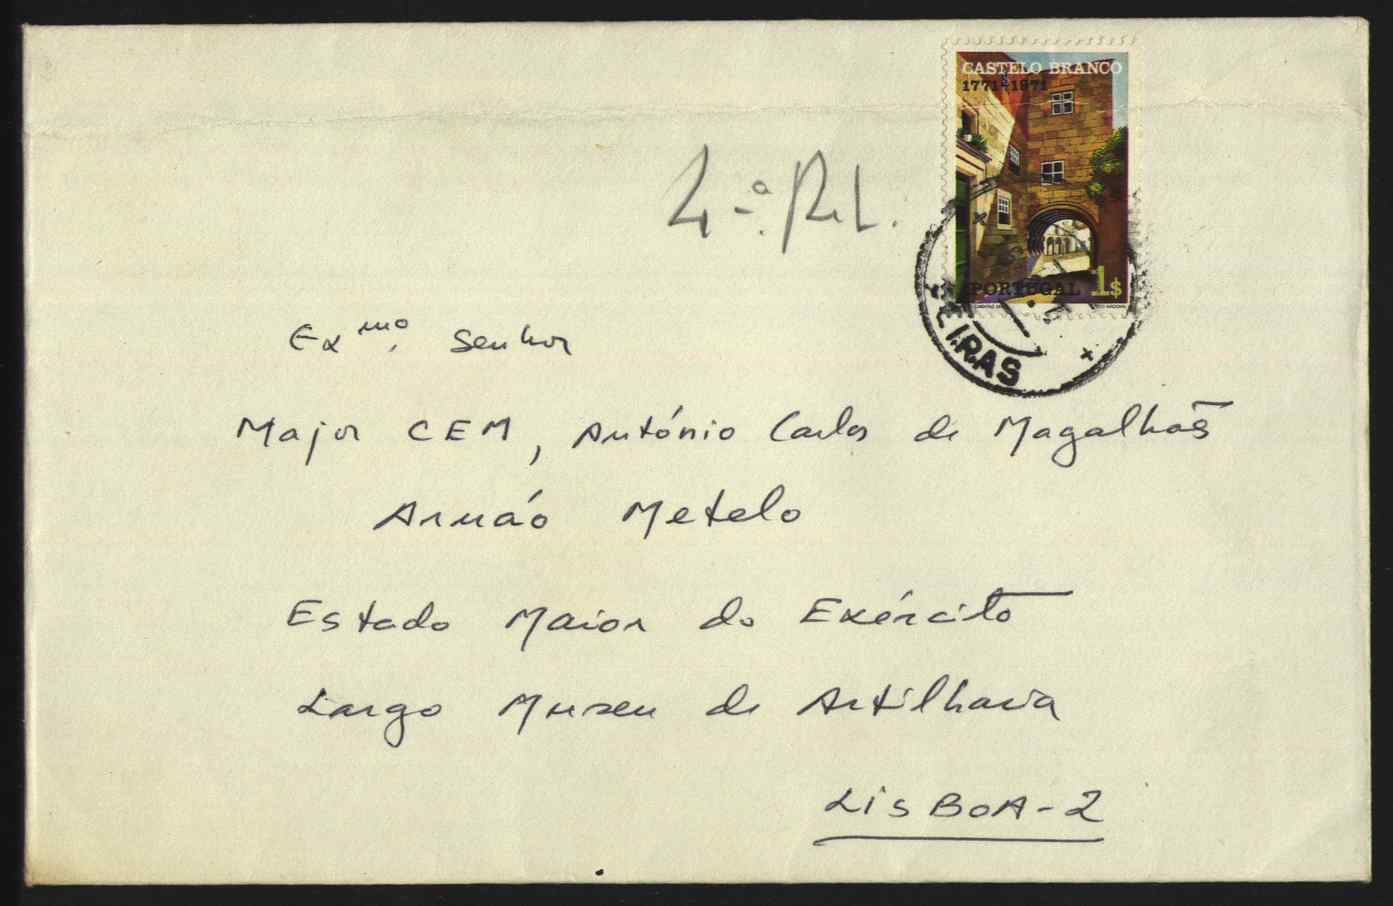 CASTELO BRANCO
1771-1971
PORTUGAL 1$
EIRAS
4.ª Rel.
Exmo. Senhor
Major CEM, António Carlos de Magalhães
Arnáo Metelo
Estado Maior do Exército
Largo Museu de Artilharia
LISBOA-2